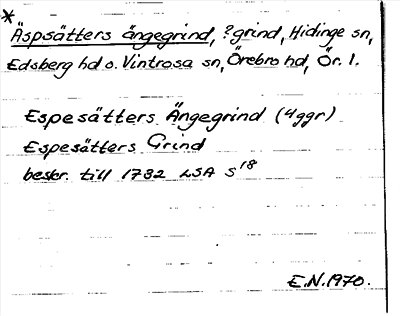 *
Äspsätters ängegrind, ?grind, Hidinge sn,
Edsberg hd o. Vintrosa sn, Örebro hd, Ör. l.
Espesätters Ängegrind (4ggr)
Espesätters Grind
beskr. till 1782 LSA S18
E.N.1970.